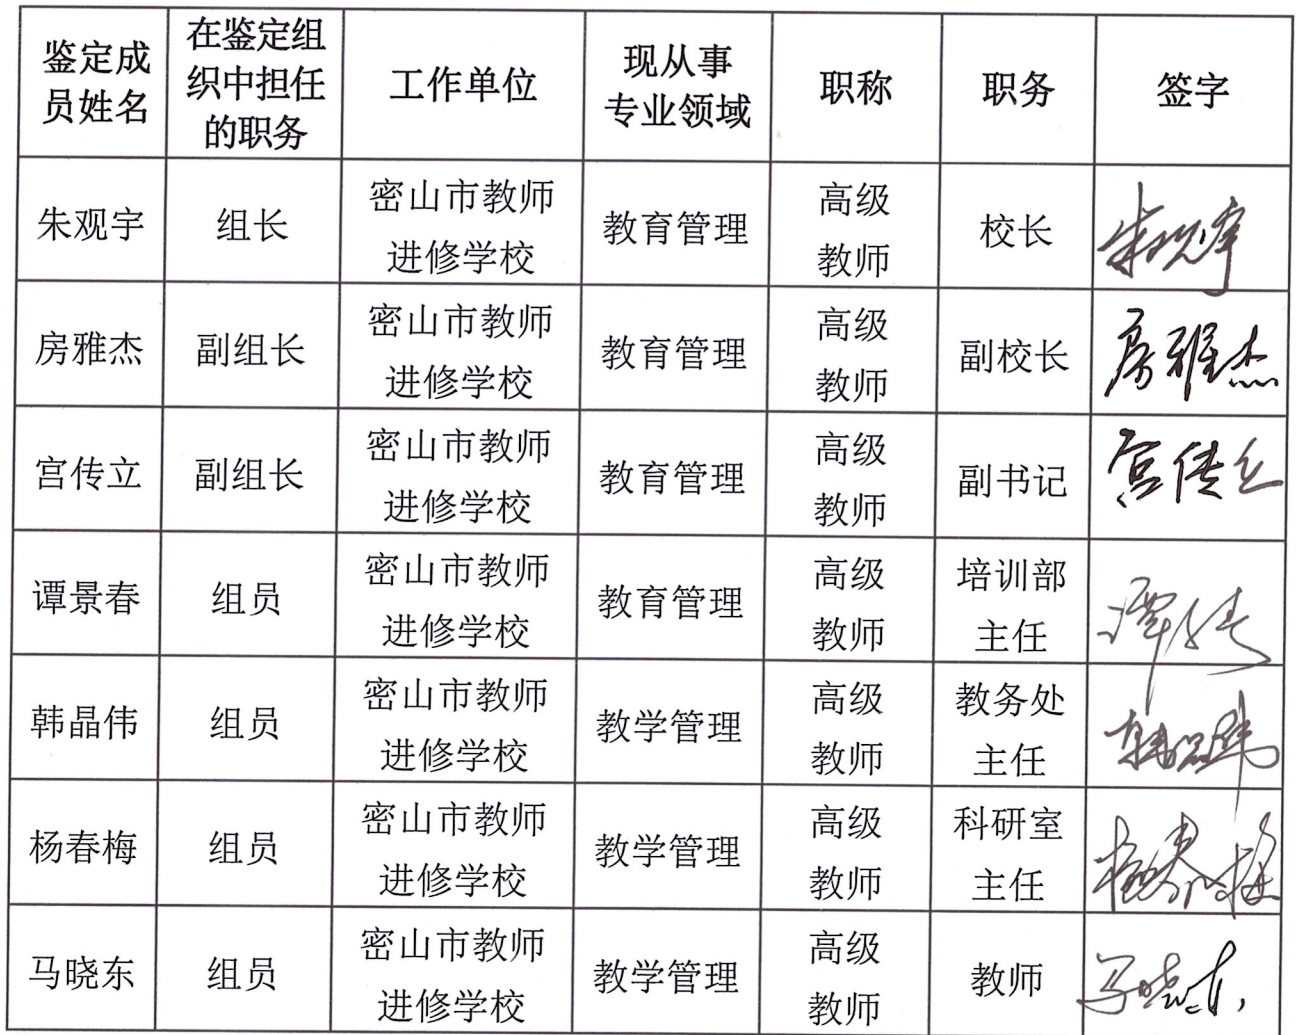 鉴定成
员姓名
在鉴定组
织中担任
的职务
工作单位
现从事
专业领域
职称
职务
签字
朱观宇
组长
密山市教师
进修学校
教育管理
高级
教师
校长
朱观宇
房雅杰
副组长
密山市教师
进修学校
教育管理
高级
教师
副校长
房雅杰
宫传立
副组长
密山市教师
进修学校
教育管理
高级
教师
副书记
宫传立
谭景春
组员
密山市教师
进修学校
教育管理
高级
教师
培训部
主任
谭景春
韩晶伟
组员
密山市教师
进修学校
教学管理
高级
教师
教务处
主任
韩晶伟
杨春梅
组员
密山市教师
进修学校
教学管理
高级
教师
科研室
主任
杨春梅
马晓东
组员
密山市教师
进修学校
教学管理
高级
教师
教师
马晓东